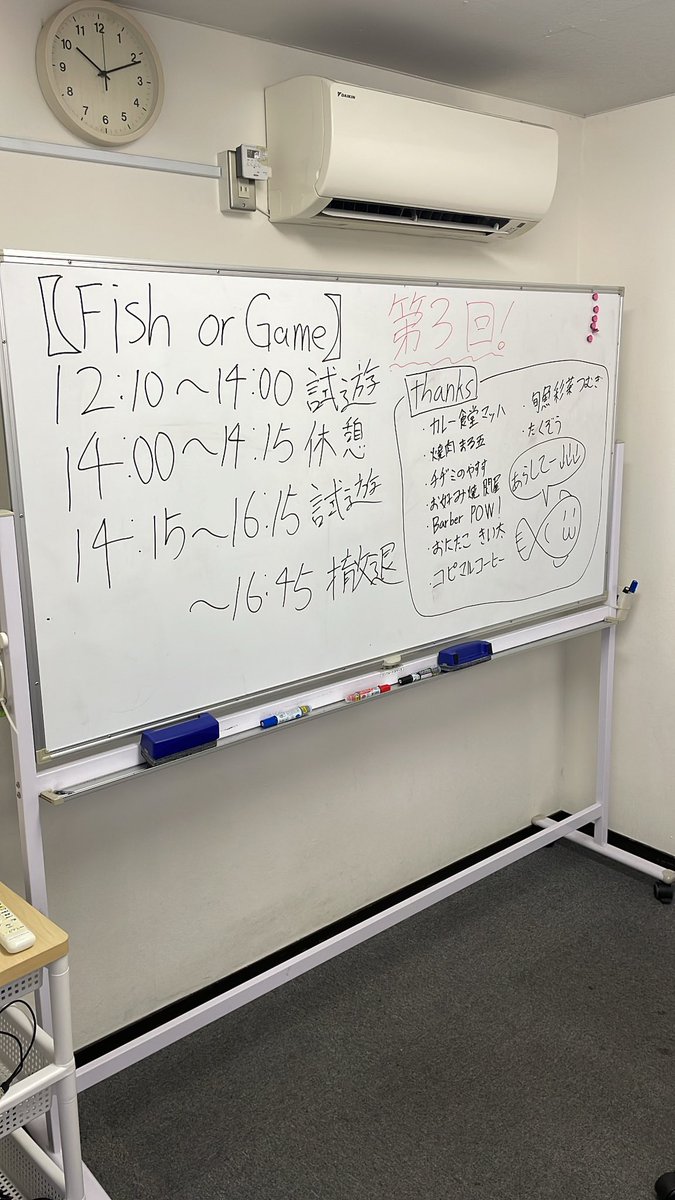 DAIKIN
12
1
2
3
4
5
6
7
8
9
10
11
【Fish or Game】
第3回!
12:10～14:00 試遊
14:00～14:15 休憩
14:15～16:15 試遊
～16:45 撤退
thanks
・カレー食堂マッハ
・焼肉 まる五
・チヂミのやすす
・お好み焼 問屋
・Barber POW!
・おたたこ きい太
・コピマルコーヒー
・旬魚彩菜つむぎ
・たくぞう
あらしてー↓↓↓